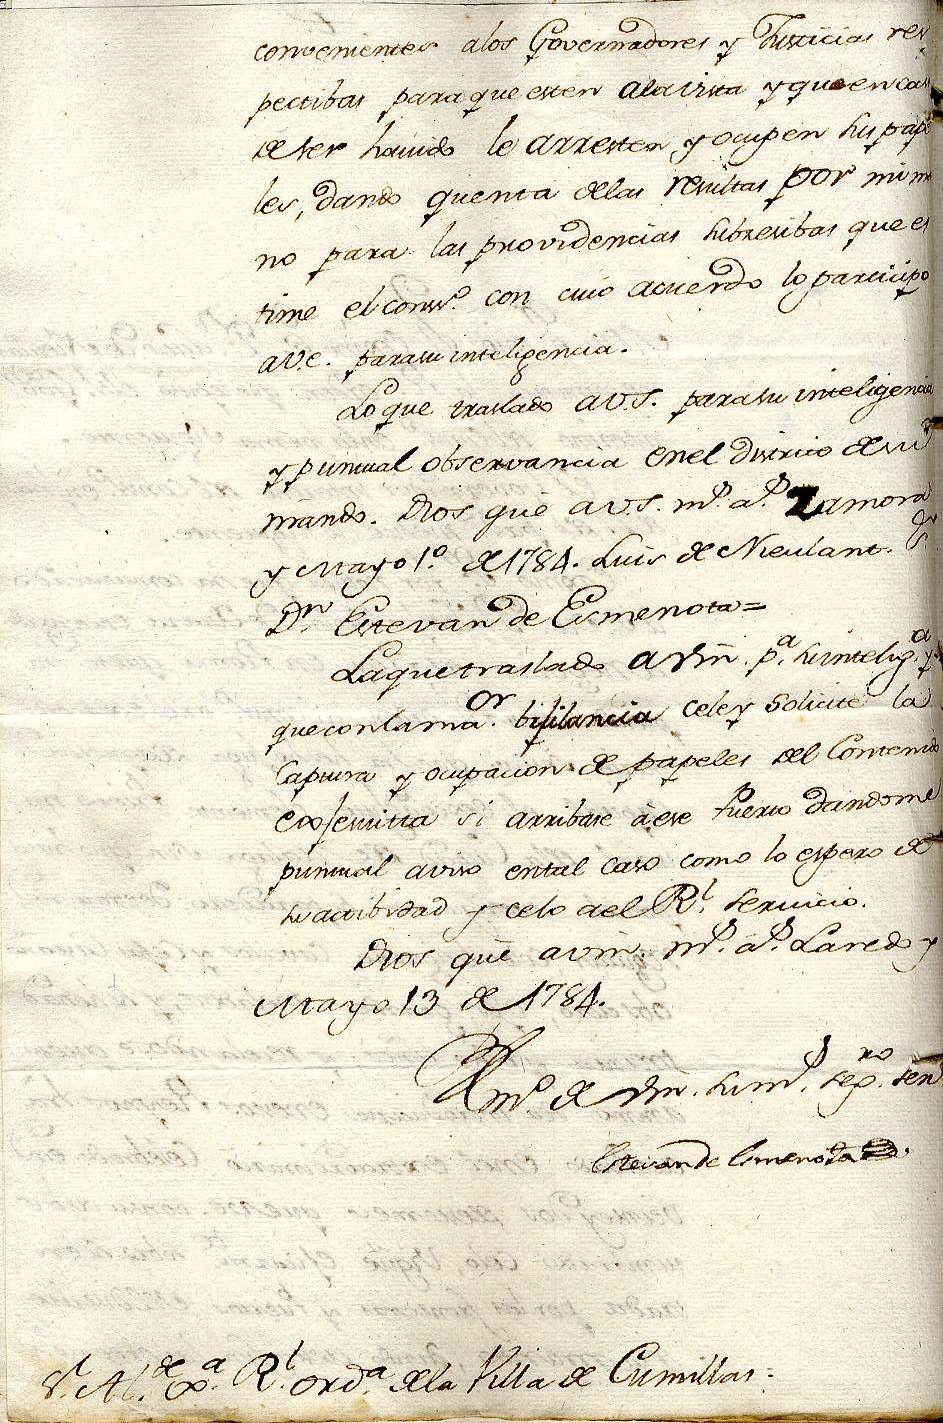 convenientes alos Governadores y Justicias res
pectibas para que esten ala vista y que en cas
de ser havido le arresten y ocupen sus pape
les, dando quenta delas resultas por mi ma
no para las providencias subsesibas que es
time el consº. con cuio acuerdo lo participo
a V.e. para su inteligencia.
Lo que traslado a V.S. para su inteligencia
y puntual observancia en el distrito de su
mando. Dios gue a V.S. ms. as. Zamora
y Mayo 1º. de 1784. Luis de Nieulant. Sr.
Dn. Estevan de Esmenota=
La que traslado a Vm. pa. su inteliga. y
que con la maor. bijilancia cele y solicite la
Captura y ocupacion de papeles del Contenido
exjesuitta si arribase à ese Puerto dandome
puntual aviso en tal caso como lo espero de
su actibidad y celo del Rl. servicio.
Dios gue a vm. ms. as. Laredo y
Mayo 13 de 1784.
Bmo. de Vm. su ms. segro. serr
Estevan de Esmenota
Sr. Alde. xa. Rl. ordª. dela Villa de Cumillas: